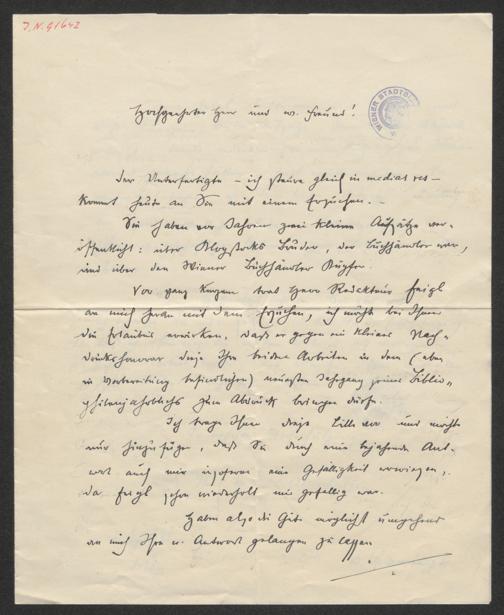 J.N. 91642
WIENER STADTBI
Hochgeehrter Herr und w. Freund!
Der Unterfertigte – ich steure gleich in medias res –
kommt heute an Sie mit einem Ersuchen. –
Sie haben vor Jahren zwei kleine Aufsätze ver-
öffentlicht: über Klopstocks Bruder, der Buchhändler war,
und über den Wiener Buchhändler
Vor ganz Kurzem trat Herr Redakteur Feigl
an mich heran mit dem Ersuchen, ich möchte bei Ihnen
die Erlaubnis erwirken, daß er gegen ein kleines Nach-
druckshonorar diese Ihre beiden Arbeiten in dem (eben
in Vorbereitung befindlichen) neuesten Jahrgang seines Biblio-
philenjahrbuchs zum Abdruck bringen dürfe.
Ich trage Ihnen diese Bitte vor und möchte
nur hinzufügen, daß Sie durch eine bejahende Ant-
wort auch mir insoferne eine Gefälligkeit erweisen,
da Feigl schon wiederholt mir gefällig war.
Haben also die Güte möglichst umgehend
an mich Ihre w. Antwort gelangen zu lassen